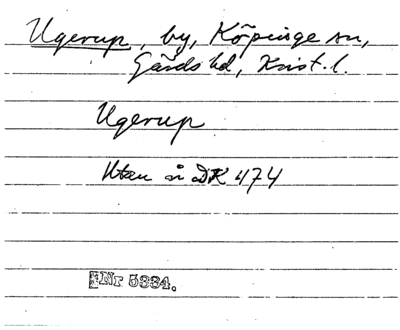 Ugerup, by, Köpinge sn,
Gärds hd, Krist. l.
Ugerup
Utan nr DK 474
Nr 5334.